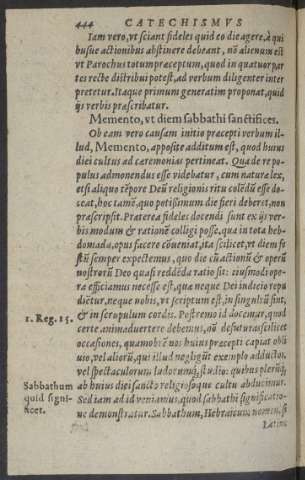 444 CATECHISMVS
Iam vero, vt sciant fideles quid eo die agere, à qui
busue actionibus abstinere debeant, nō alienum est
vt Parochus totum præceptum, quod in quatuor par
tes recte distribui potest, ad verbum diligenter inter
pretetur. Itaque primum generatim proponat, quid
ijs verbis præscribatur.
Memento, vt diem sabbathi sanctifices.
Ob eam vero causam initio præcepti verbum il-
lud, Memento, apposite additum est, quod huius
diei cultus ad cæremonias pertineat. Qua de re po-
pulus admonendus esse videbatur, cum naturæ lex,
etsi aliquo tēpore Deū religionis ritu colēdū esse do-
ceat, hoc tamē, quo potissimum die fieri deberet, non
præscripsit. Præterea fideles docendi sunt ex ijs ver-
bis modum & rationē colligi posse, qua in tota heb-
domada, opus facere cōueniat, ita scilicet, vt diem fe
stū semper expectemus, quo die cū actionū & operū
nostrorū Deo quasi reddēda ratio sit: eiusmodi ope-
ra efficiamus necesse est, quæ neque Dei iudicio repu
diētur, neque nobis, vt scriptum est, in singultū sint,
1. Reg. 15. & in scrupulum cordis. Postremo id docemur, quod
certe animaduertere debemus, nō defuturas scilicet
occasiones, quamobrē nos huius præcepti capiat obli
uio, vel aliorū, qui illud negligūt exemplo adductos,
vel spectaculorum ludorumq; studio: quibus plerūq;
Sabbathum ab huius diei sancto religiosoque cultu abducimur.
quid signi- Sed iam ad id veniamus, quod sabbathi significatio-
ficet. ne demonstratur. Sabbathum, Hebraicum nomen, si
Latine